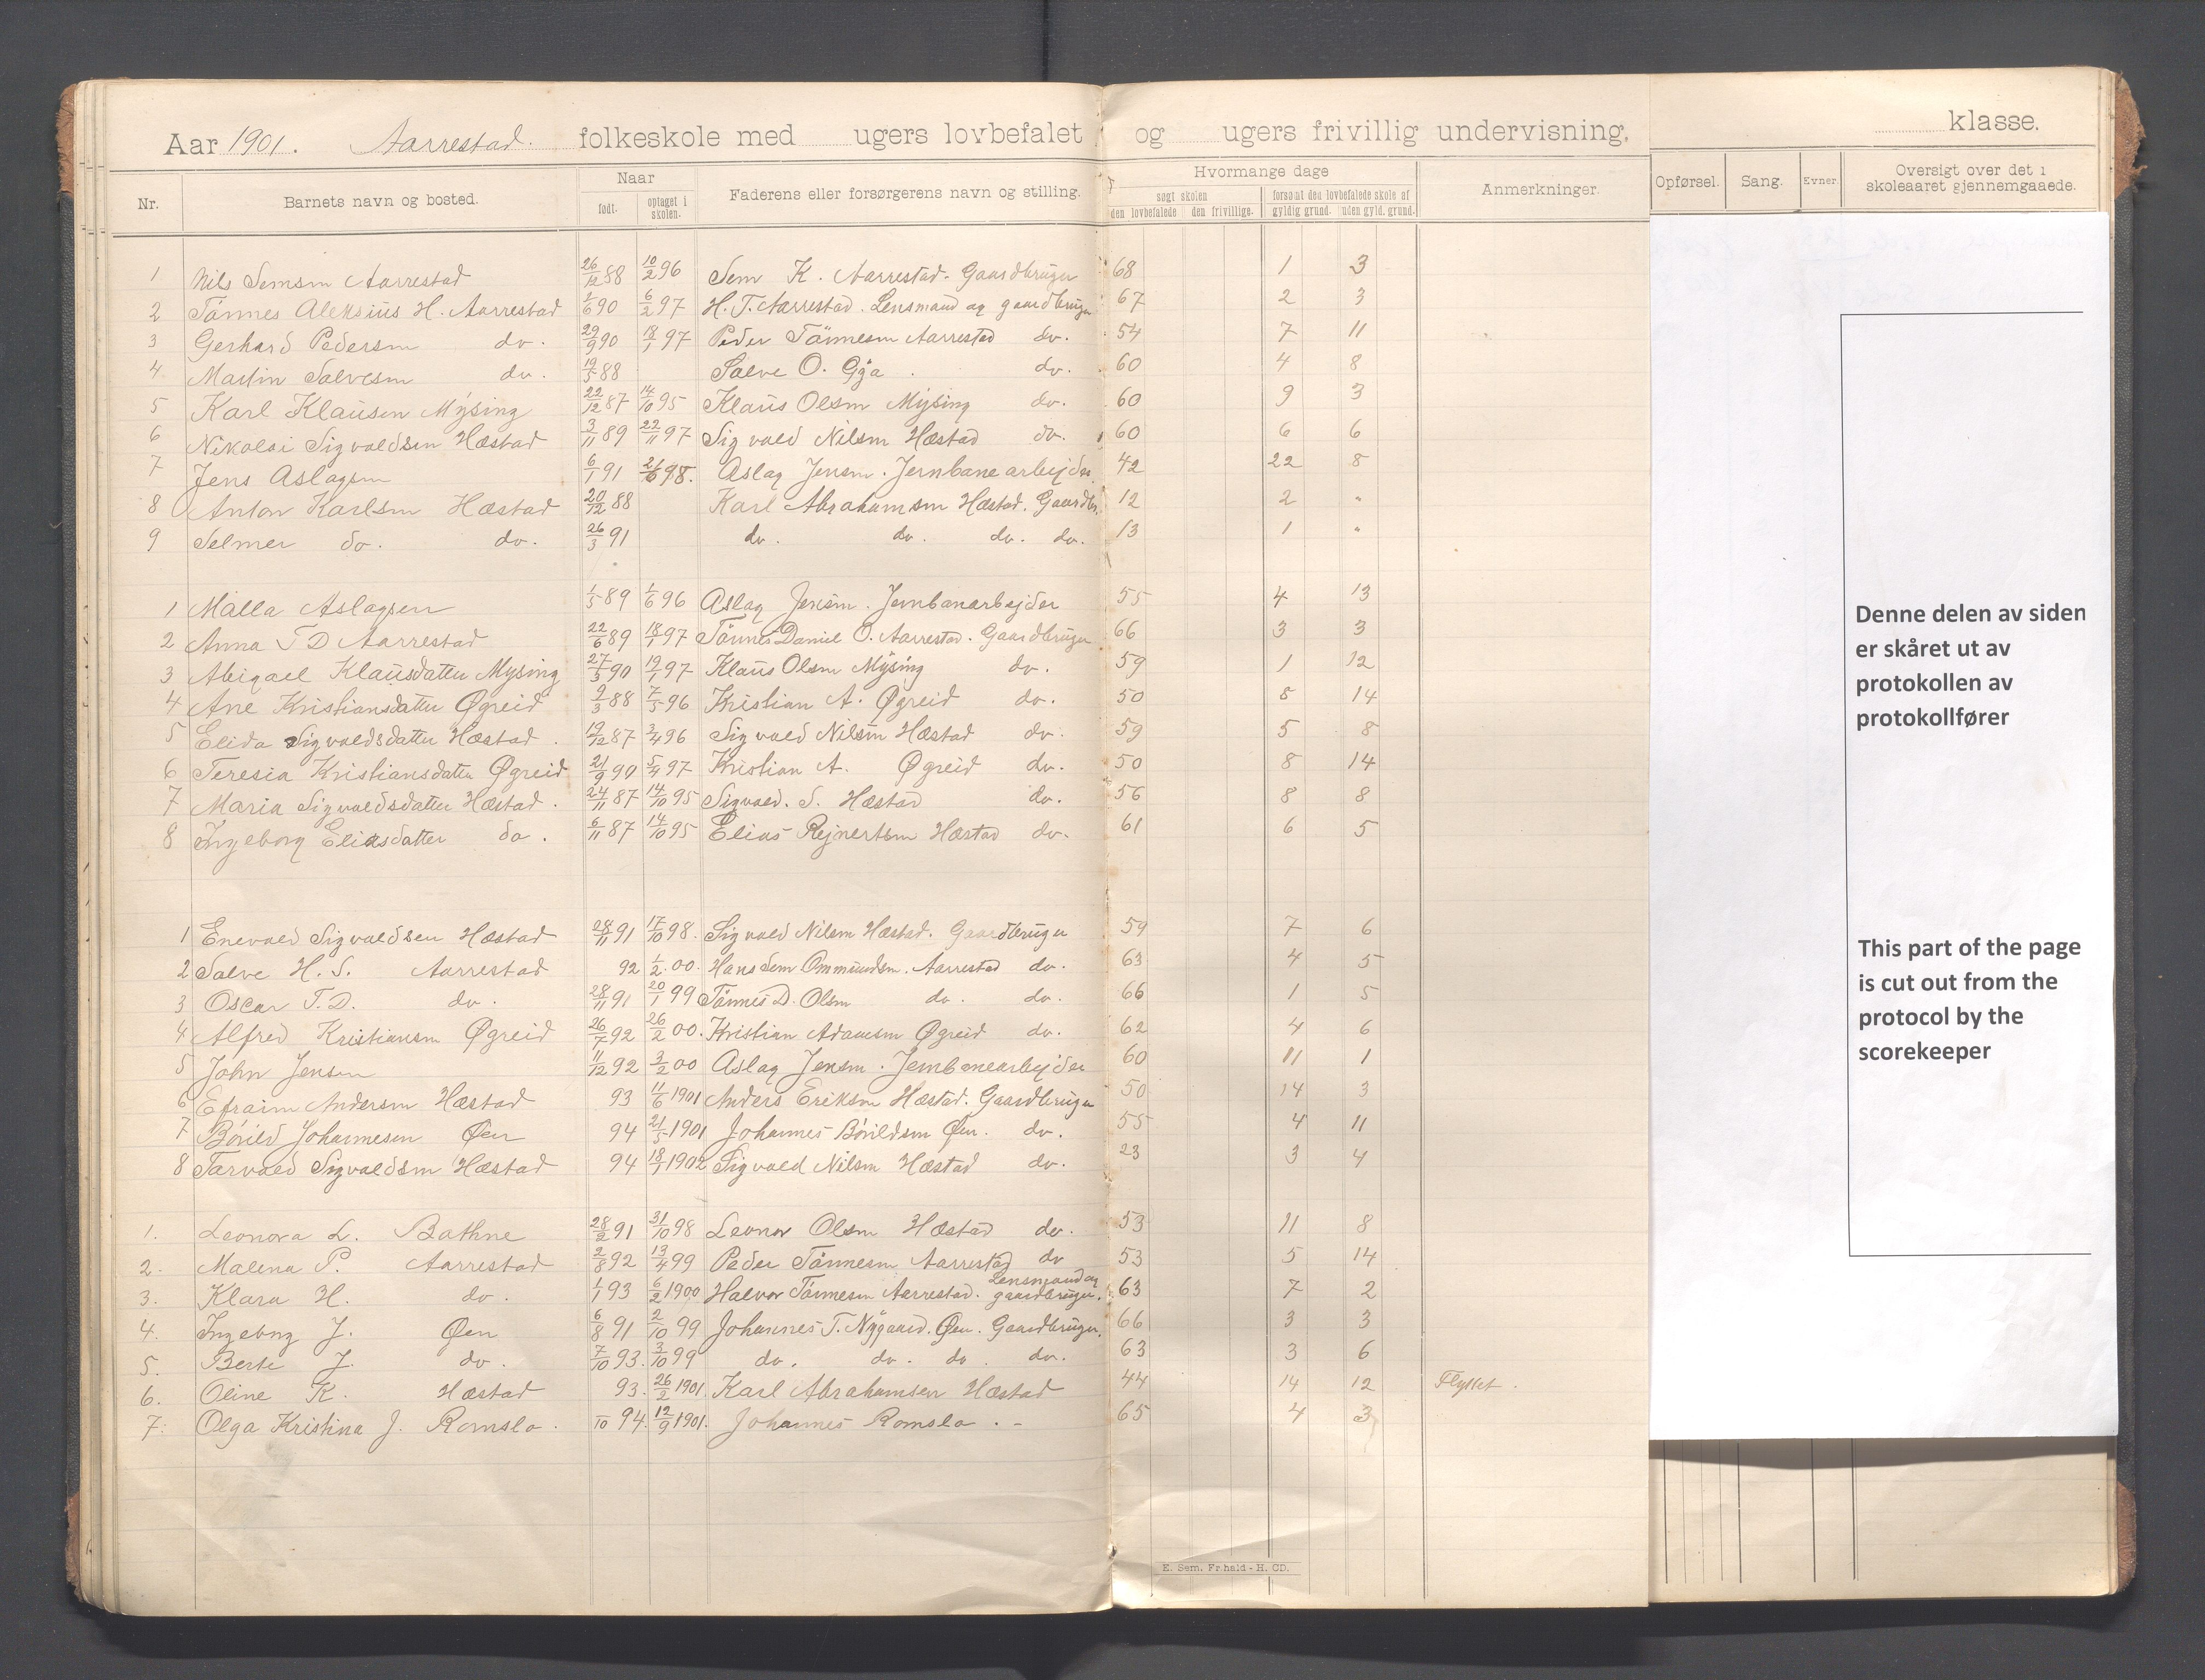 Aar 1901. Aarrestad. folkeskole med ugers lovbefalet og ugers frivillig undervisning, klasse.
Nr. Barnets navn og bosted. Naar født. optaget i skolen. Faderens eller forsørgerens navn og stilling. Hvormange dage søgt skolen den lovbefalede den frivillige. forsømt den lovbefalede skole af gyldig grund. uden gyld. grund. Anmerkninger. Opførsel. Sang. Evner. Oversigt over det i skoleaaret gjennemgaaede.
1 Nils Semsen Aarrestad 26/12 88 10/2 96 Sem K. Aarrestad. Gaardbruger 68 1 3
2 Tönnes Aleksius H. Aarrestad 1/6 90 6/2 97 H. T. Aarrestad. Lensmand og gaardbruger 67 2 3
3 Gerhard Pedersen do. 29/9 90 18/1 97 Peder Tönnesen Aarrestad do. 54 7 11
4 Martin Salvesen do. 19/5 88 Salve O. do. 60 4 8
5 Karl Klausen Mysing 22/12 87 14/10 95 Klaus Olsen Mysing do. 60 9 3
6 Nikolai Sigvaldsen Hæstad 3/11 89 22/11 97 Sigvald Nilsen Hæstad do. 60 6 6
7 Jens Aslagsen 6/1 91 98. Aslag Jensen. Jernbanearbejder 42 22 8
8 Anton Karlsen Hæstad 20/12 88 Karl Abrahamsen Hæstad. Gaardbr. 12 2 "
9 Selmer do. do. 26/3 91 do. do. do. do. 13 1 "
1 Malla Aslagsen 1/5 89 1/6 96 Aslag Jensen. Jernbanearbejder 55 4 13
2 Anna T D Aarrestad 22/6 89 18/1 97 Tönnes Daniel O. Aarrestad. Gaardbruger 66 3 3
3 Abigael Klausdatter Mysing 27/3 90 19/1 97 Klaus Olsen Mysing do. 59 1 12
4 Ane Kristiansdatter Øgreid 2/3 88 7/5 96 Kristian A. Øgreid do. 50 8 14
5 Elida Sigvaldsdatter Hæstad. 12/12 87 3/4 96 Sigvald Nilsen Hæstad do. 59 5 8
6 Teresia Kristiansdatter Øgreid 21/9 90 5/4 97 Kristian A. Øgreid do. 50 8 14
7 Maria Sigvaldsdatter Hæstad. 24/11 87 14/10 95 Sigvald. S. Hæstad do. 56 8 8
8 Ingeborg Eliasdatter do. 6/11 87 14/10 95 Elias Rejnertsen Hæstad do. 61 6 5
1 Enevald Sigvaldsen Hæstad 28/11 91 17/10 98. Sigvald Nilsen Hæstad. Gaardbruger 59 7 6
2 Salve H. S. Aarrestad 92 1/2 00. Hans Sem Ommundsen. Aarrestad do. 63 4 5
3 Oscar T. D. do. 28/11 91 20/1 99 Tönnes D. Olsen do. do. 66 1 5
4 Alfred Kristiansen Øgreid 26/7 92 26/2 00. Kristian Adamsen Øgreid do. 62 4 6
5 John Jensen 11/12 92 3/2 00 Aslag Jensen. Jernbanearbejder 60 11 1
6 Efraim Andersen Hæstad 93 11/6 1901 Anders Eriksen Hæstad. Gaardbruger 50 14 3
7 Börild Johannesen Øen 94 21/5 1901 Johannes Börildsen Øen. do. 55 4 11
8 Tarvald Sigvaldsen Hæstad 94 18/1 1902 Sigvald Nilsen Hæstad do. 23 3 4
1. Leonora L. Bathne 28/2 91 31/10 98 Leonor Olsen Hæstad do. 53 11 8
2. Malena P. Aarrestad 2/8 92 13/4 99 Peder Tönnesen Aarrestad do 53 5 14
3. Klara H. do. 1/1 93 6/2 1900 Halvor Tönnesen Aarrestad. Lensmand og gaardbruger. 63 7 2
4. Ingeborg J. Øen 6/8 91 2/10 99 Johannes T. Nygaard. Øen. Gaardbruger. 66 3 3
5. Berte J. do. 7/10 93. 3/10 99 do. do. do. do. 63 3 6
6. Oline K. Hæstad 93. 26/2 1901. Karl Abrahamsen Hæstad 44 14 12 Flyttet.
7. Olga Kristina J. Romslo. /10 94. 12/9 1901. Johannes Romslo. - 65 4 3
E. Sem. Fr.hald - H. CD.
Denne delen av siden
er skåret ut av
protokollen av
protokollfører
This part of the page
is cut out from the
protocol by the
scorekeeper